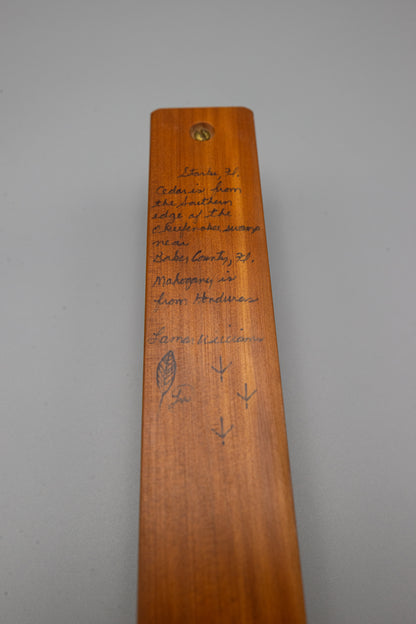 Starke, Fl.
Cedar is from
the Southern
edge of the
Okeefenokee swamp
near
Baker County, Fl.
Mahogany is
from Honduras
Lamar Williams